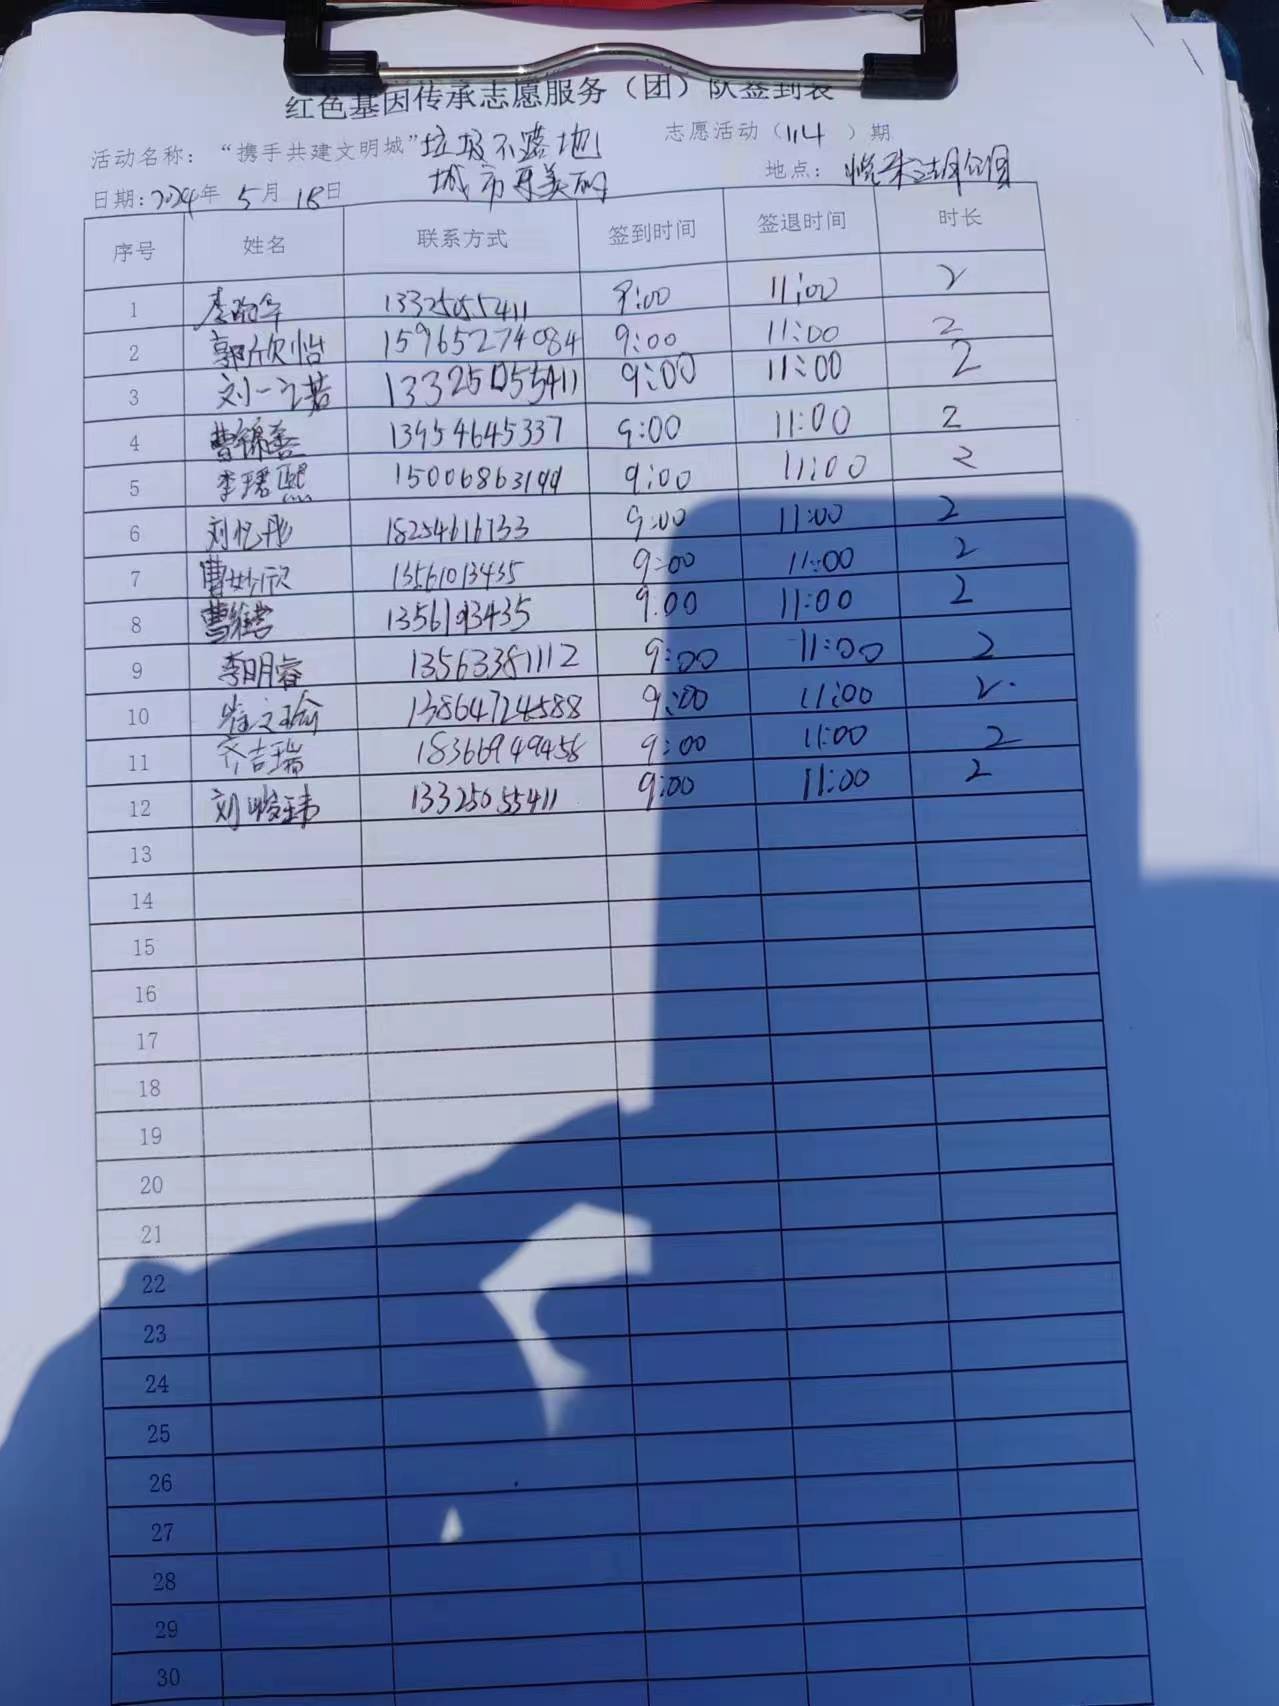 红色基因传承志愿服务（团）队签到表
活动名称：“携手共建文明城”垃圾不落地 志愿活动（114）期
城市更美丽
日期：2024年 5月 18日 地点：悦来湖公园
序号 姓名 联系方式 签到时间 签退时间 时长
1 13325055411 9:00 11:00 2
2 郭欣怡 15965274084 9:00 11:00 2
3 刘一诺 13325055411 9:00 11:00 2
4 曹锦 13954645337 9:00 11:00 2
5 李珺熙 15006863199 9:00 11:00 2
6 刘忆彤 18254616733 9:00 11:00 2
7 曹妙欣 13561013435 9:00 11:00 2
8 曹 9:00 11:00 2
9 李明睿 13563381112 9:00 11:00 2
10 崔文瑜 13864724588 9:00 11:00 2
11 齐吉瑞 18366949458 9:00 11:00 2
12 刘峻玮 13325055411 9:00 11:00 2
13
14
15
16
17
18
19
20
21
22
23
24
25
26
27
28
29
30